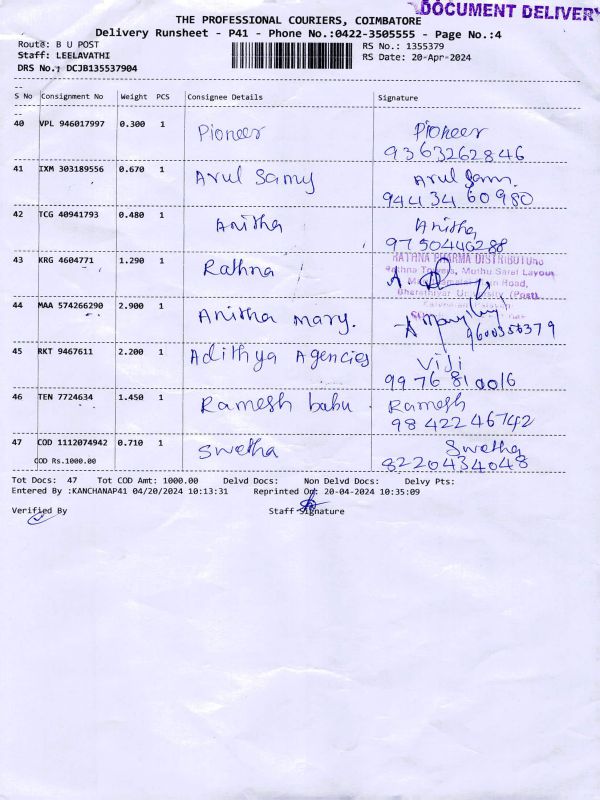 DOCUMENT DELIVERY
THE PROFESSIONAL COURIERS, COIMBATORE
Delivery Runsheet - P41 - Phone No.:0422-3505555 - Page No.:4
Route: B U POST
RS No.: 1355379
Staff: LEELAVATHI
RS Date: 20-Apr-2024
DRS No.: DCJB135537904
S No Consignment No Weight PCS Consignee Details Signature
40 VPL 946017997 0.300 1 Pioneer Pioneer
9363262846
41 IXM 303189556 0.670 1 Arul Samy Arul Sam.
9443460980
42 TCG 40941793 0.480 1 Anitha Anitha
9750446288
43 KRG 4604771 1.290 1 Rathna
RATHNA PHARMA DISTRIBUTORS
Rathna Towers, Muthu Saral Layout
Road,
Bharathiyar University (Post)
44 MAA 574266290 2.900 1 Anitha mary.
9600356379
45 RKT 9467611 2.200 1 Adithya Agencies Viji
9976810016
46 TEN 7724634 1.450 1 Ramesh babu Ramesh
9842246742
47 COD 1112074942 0.710 1 Swetha Swetha
COD Rs.1000.00 8220434048
Tot Docs: 47 Tot COD Amt: 1000.00 Delvd Docs: Non Delvd Docs: Delvy Pts:
Entered By :KANCHANAP41 04/20/2024 10:13:31 Reprinted On: 20-04-2024 10:35:09
Verified By Staff Signature